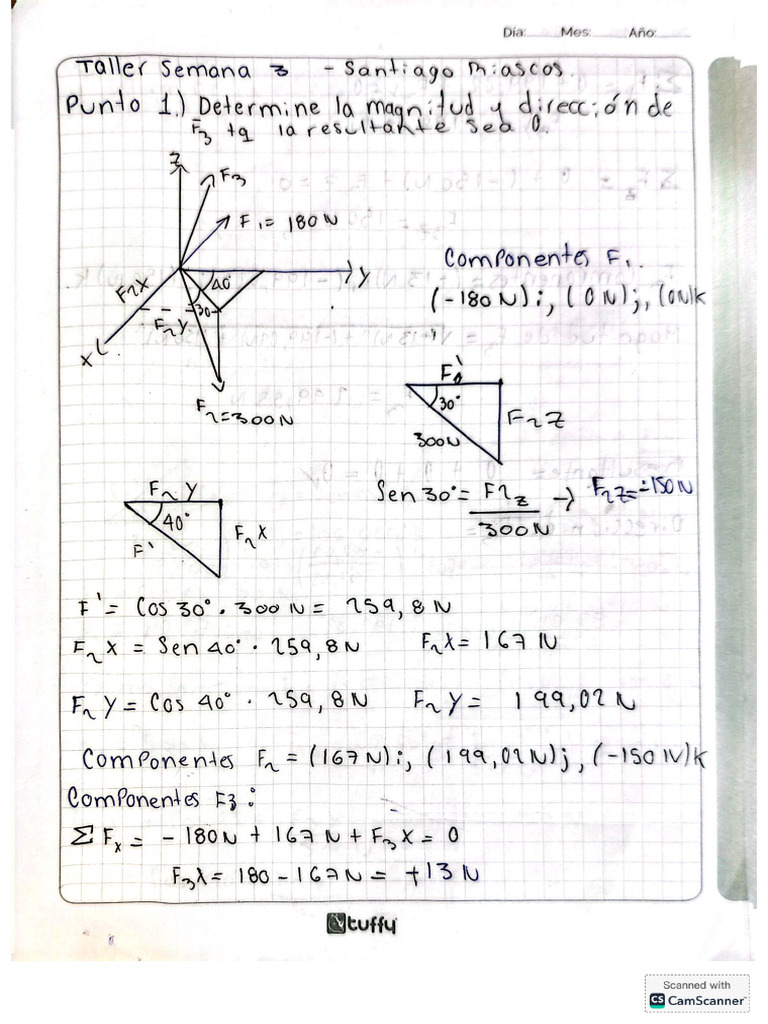 Día: Mes: Año:
Taller Semana 3 - Santiago Riascos.
Punto 1.) Determine la magnitud y dirección de
F3 tq la resultante sea 0.
z
F3
F1= 180 N
y
40°
F2X
30°
F2Y
x
F2=300N
Componentes F1.
(-180 N)i, (0 N)j, (0N)k
F'
30°
300N
F2Z
Sen 30° = F2z / 300N → F2z = -150 N
F2 Y
40°
F2 X
F'
F' = Cos 30° · 300 N = 259,8 N
F2 X = Sen 40° · 259,8 N F2X = 167 N
F2 Y = Cos 40° · 259,8 N F2 Y = 199,02 N
Componentes F2 = (167 N)i, (199,02N)j, (-150 N)k
Componentes F3:
Σ Fx = - 180N + 167 N + F3 X = 0
F3X = 180 - 167N = +13 N
tuffy
Scanned with
CS CamScanner